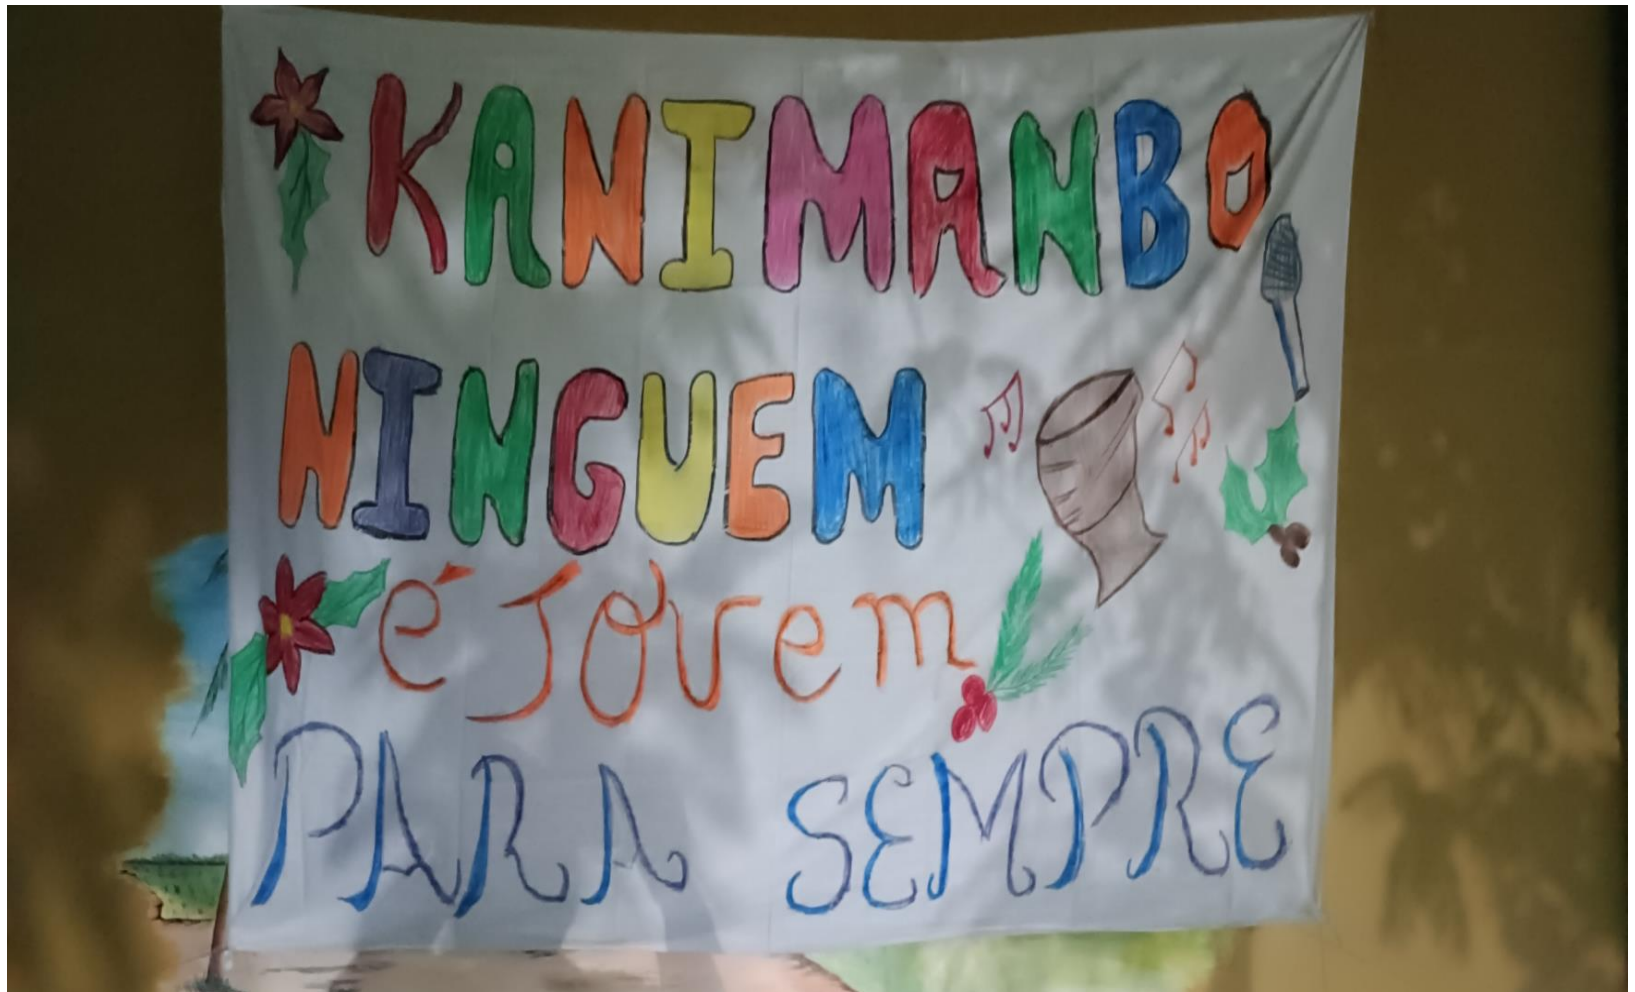 KANIMANBO
NINGUEM
é Jovem
PARA SEMPRE